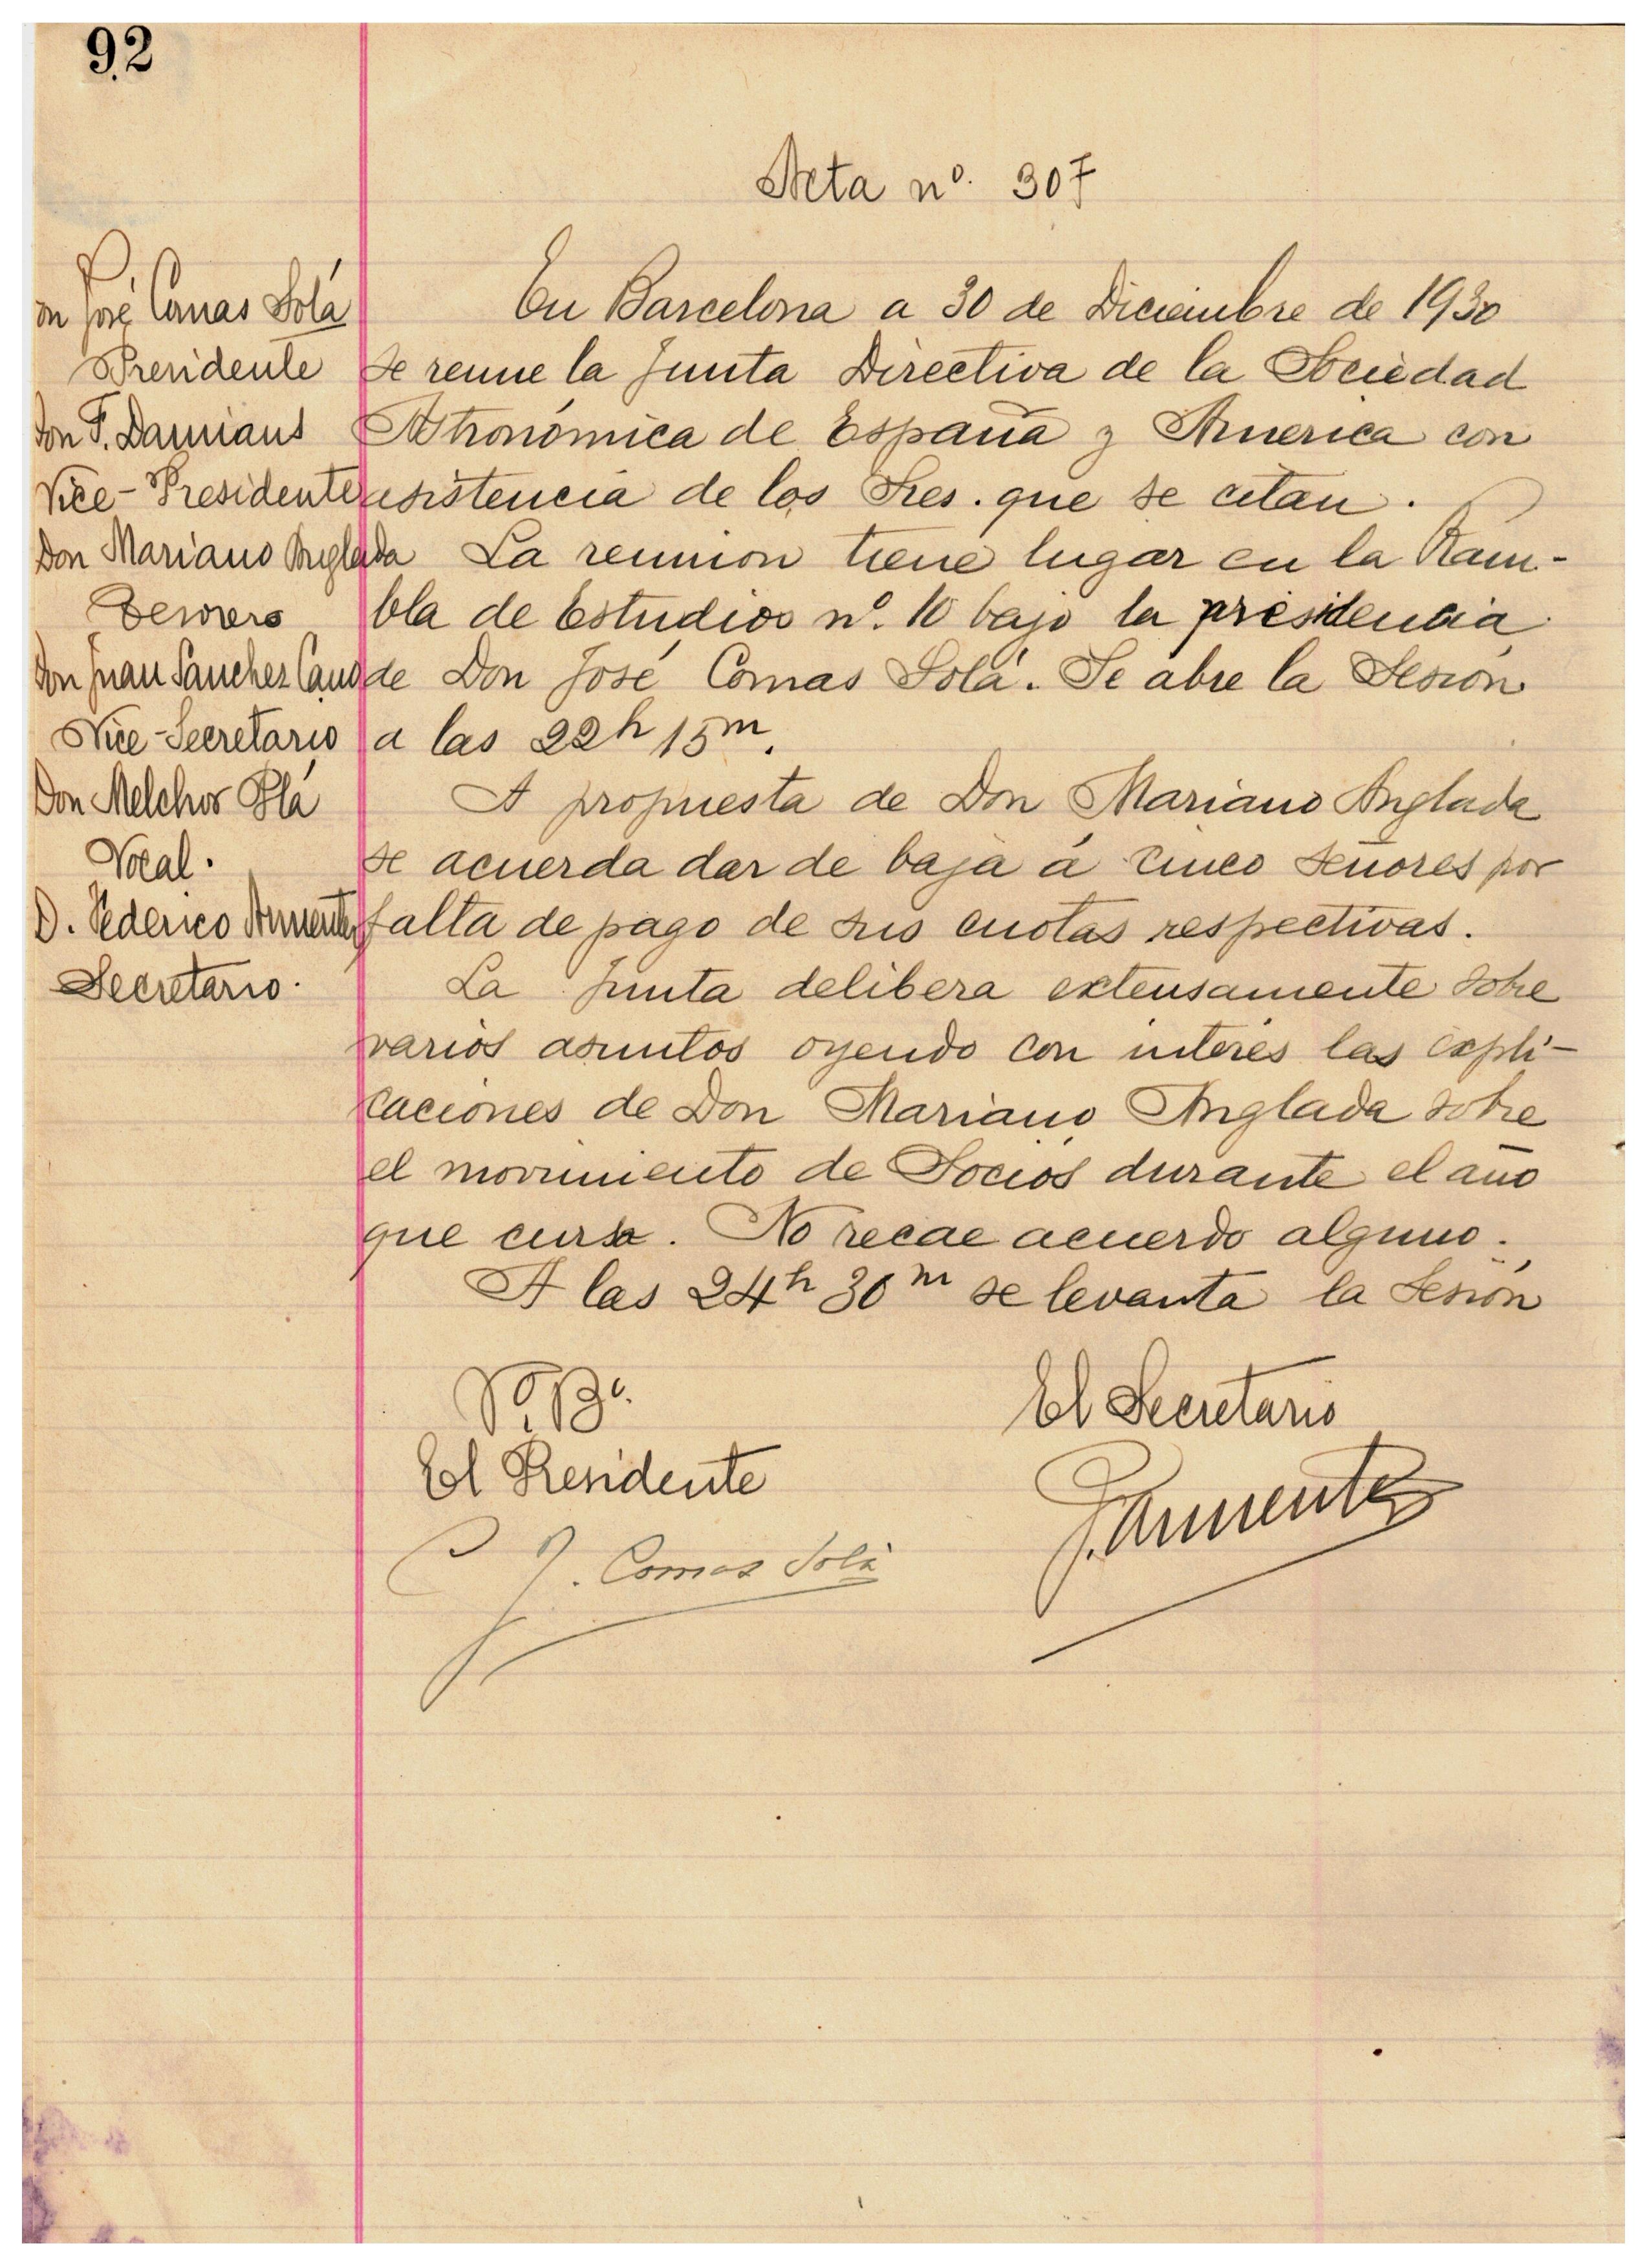 92
Acta nº. 307
Don José Comas Solá
Presidente
Don F. Damians
Vice-Presidente
Don Mariano Anglada
Tesorero
Don Juan Sanchez Cano
Vice-Secretario
Don Melchor Plá
Vocal.
D. Federico Armenter
Secretario.
En Barcelona a 30 de Diciembre de 1930
se reune la Junta Directiva de la Sociedad
Astronómica de España y America con
asistencia de los Sres. que se citan.
La reunion tiene lugar en la Ram-
bla de Estudios nº. 10 bajo la presidencia
de Don José Comas Solá. Se abre la Sesión
a las 22h 15m.
A propuesta de Don Mariano Anglada
se acuerda dar de baja á cinco señores por
falta de pago de sus cuotas respectivas.
La Junta delibera extensamente sobre
varios asuntos oyendo con interés las expli-
caciones de Don Mariano Anglada sobre
el movimiento de Socios durante el año
que cursa. No recae acuerdo alguno.
A las 24h 30m se levanta la Sesión
Vº. Bº.
El Presidente
J. Comas Solá
El Secretario
F. Armenter